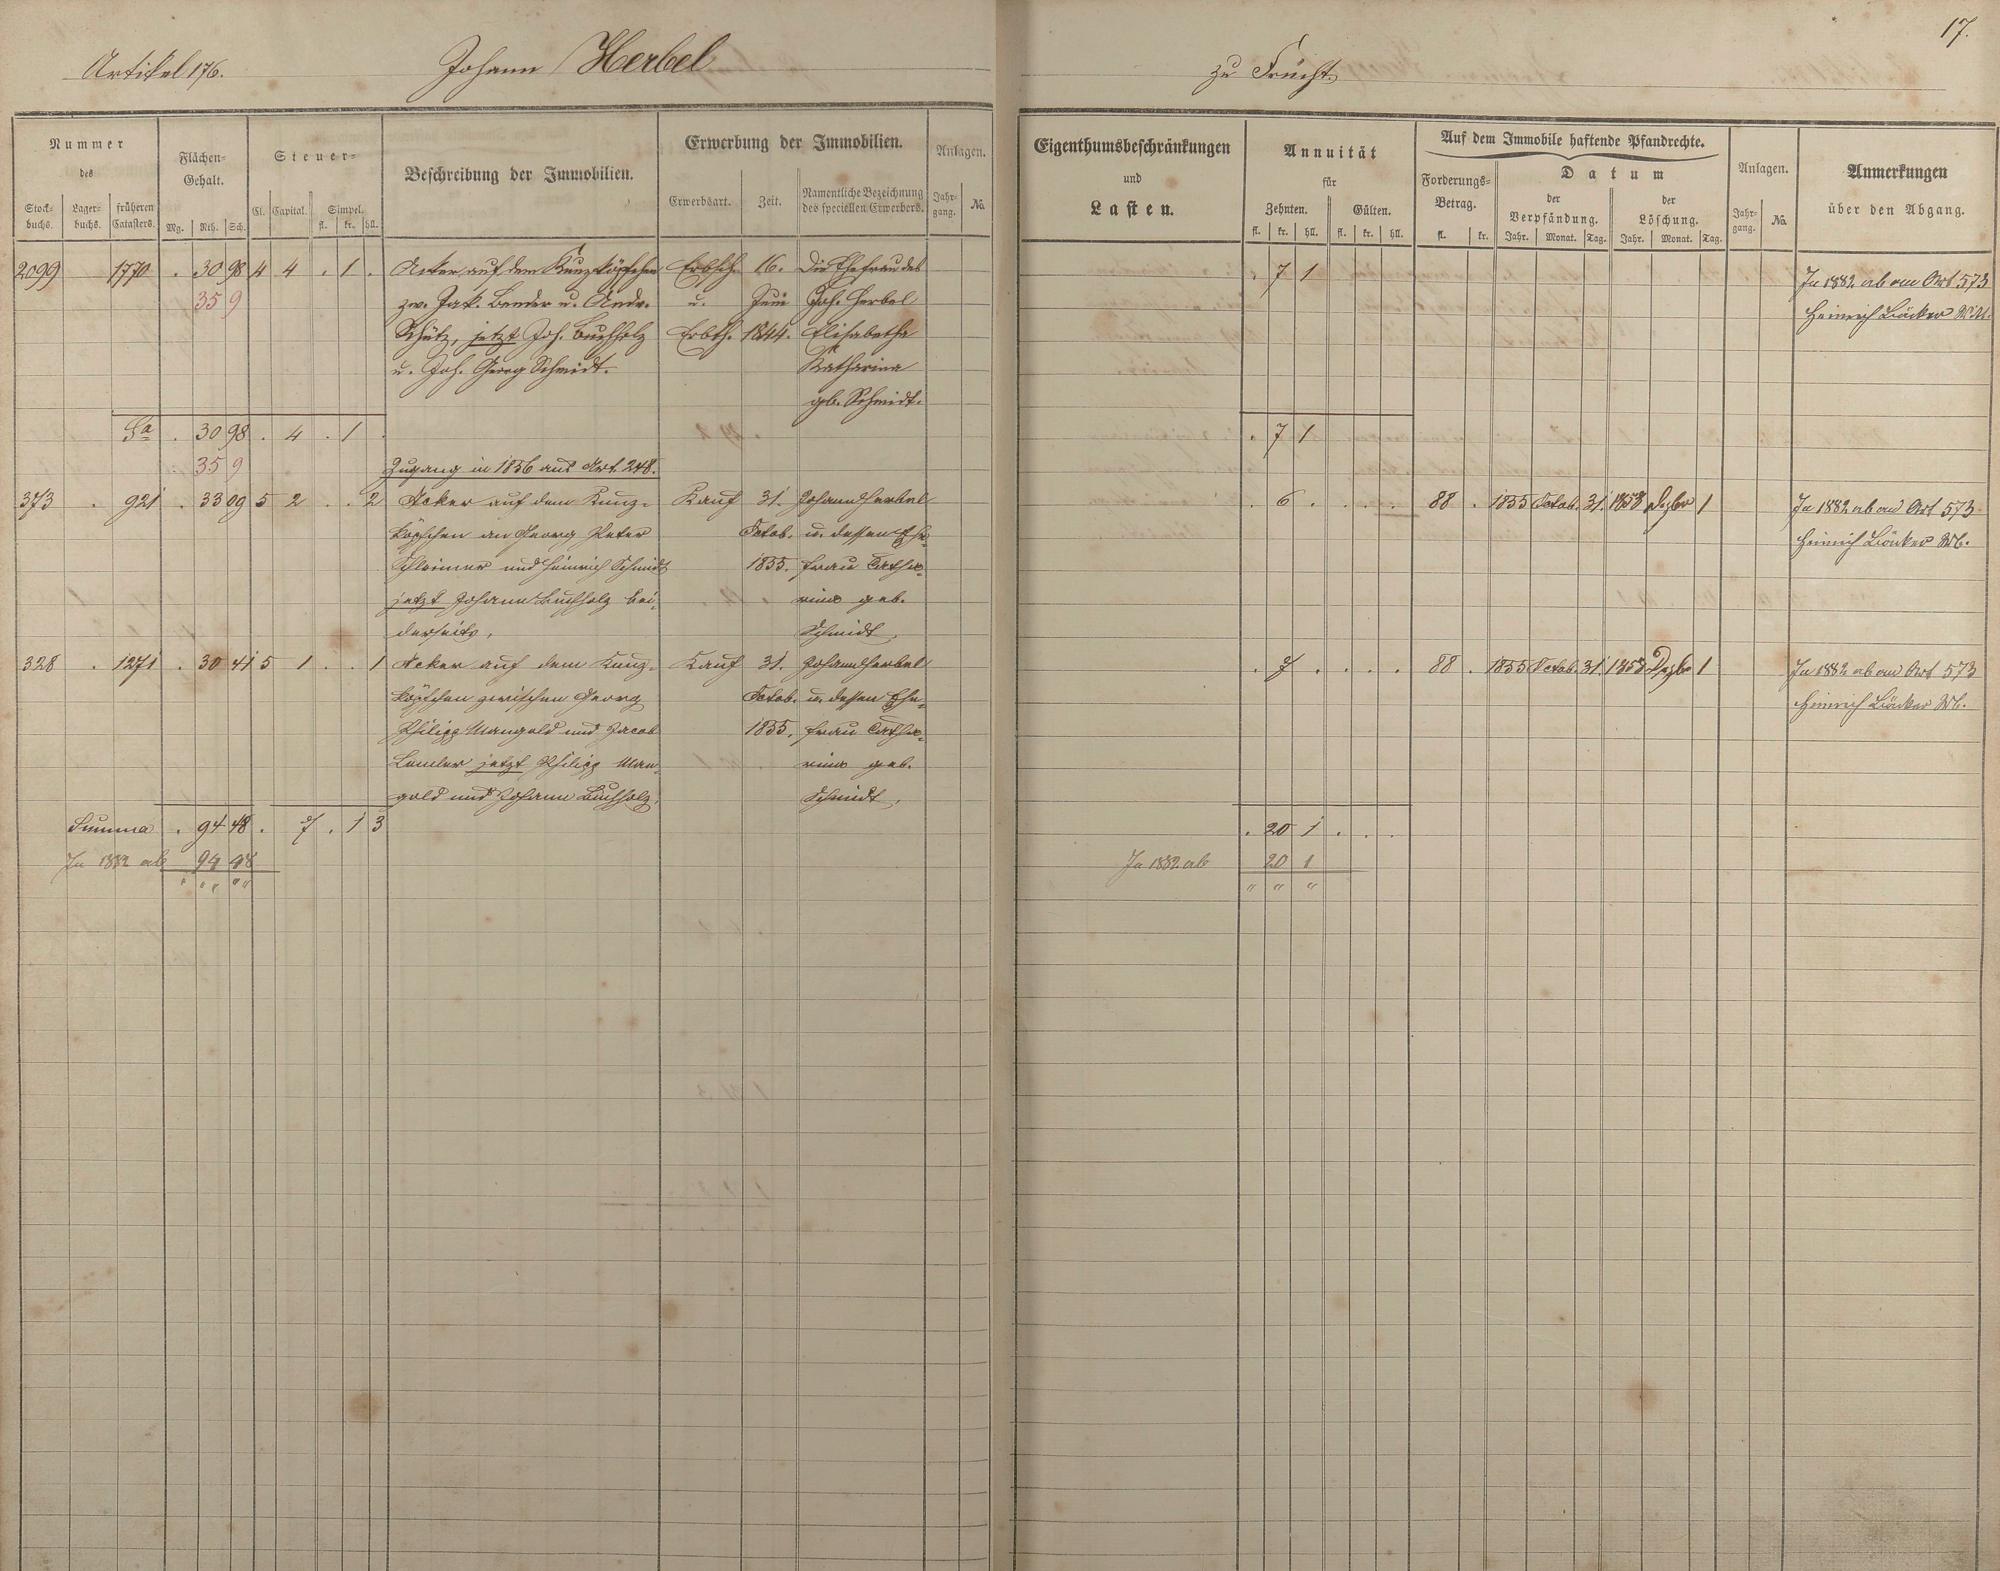 17.
Artikel 176. Johann Herbel zu Frücht.
Nummer des
Stock-buchs. Lager-buchs. früheren Catasters.
Flächen-Gehalt.
Mg. Rth. Sch.
Steuer-
Cl. Capital. Simpel.
fl. kr. hll.
Beschreibung der Immobilien.
Erwerbung der Immobilien.
Erwerbsart. Zeit. Namentliche Bezeichnung des speciellen Erwerbers.
Anlagen.
Jahr-gang. No.
Eigenthumsbeschränkungen und Lasten.
Annuität für
Zehnten. Gülten.
fl. kr. hll. fl. kr. hll.
Auf dem Immobile haftende Pfandrechte.
Forderungs-Betrag.
fl. kr.
Datum
der Verpfändung. der Löschung.
Jahr. Monat. Tag. Jahr. Monat. Tag.
Anlagen.
Jahr-gang. No.
Anmerkungen über den Abgang.
2099 1770 . 30 98 4 4 . 1 . Acker auf dem Kunzköpfchen Erbsch. 16. Die Ehefrau des . 7 1 In 1882 ab am Art 573
35 9 zw. Jak. Bender u. Andr. u. Juni Joh. Herbel Heinrich
Schütz, jetzt Joh. Buchholz Erbth. 1844. Elisabetha
u. Joh. Georg Schmidt. Katharina
gb. Schmidt.
Sa . 30 98 . 4 . 1 . . 7 1
35 9 Zugang in 1856 aus Art. 248.
373 . 921 . 33 09 5 2 . . 2 Acker auf dem Kunz- Kauf 31. Johann Herbel . 6 . . . . 88 . 1855 Octob. 31. 1858 Dezbr 1 In 1882 ab am Art 573
köpfchen an Georg Peter Octob. u. dessen Ehe- Heinrich
und Heinrich Schmidt 1855. frau Catha-
jetzt Johann Buchholz bei- rina geb.
derseits, Schmidt,
328 . 1271 . 30 41 5 1 . . 1 Acker auf dem Kunz- Kauf 31. Johann Herbel . 7 . . . . 88 . 1855 Octob. 31. 1858 Dezbr 1 In 1882 ab am Art 573
köpfchen zwischen Georg Octob. u. dessen Ehe- Heinrich
Philipp Mangold und Jacob 1855. frau Catha-
jetzt Philipp Man- rina geb.
gold und Johann Buchholz, Schmidt,
Summa . 94 48 . 7 . 1 3 . 20 1 . . .
In 1882 ab 94 48 In 1882 ab 20 1
" " " " " " " "